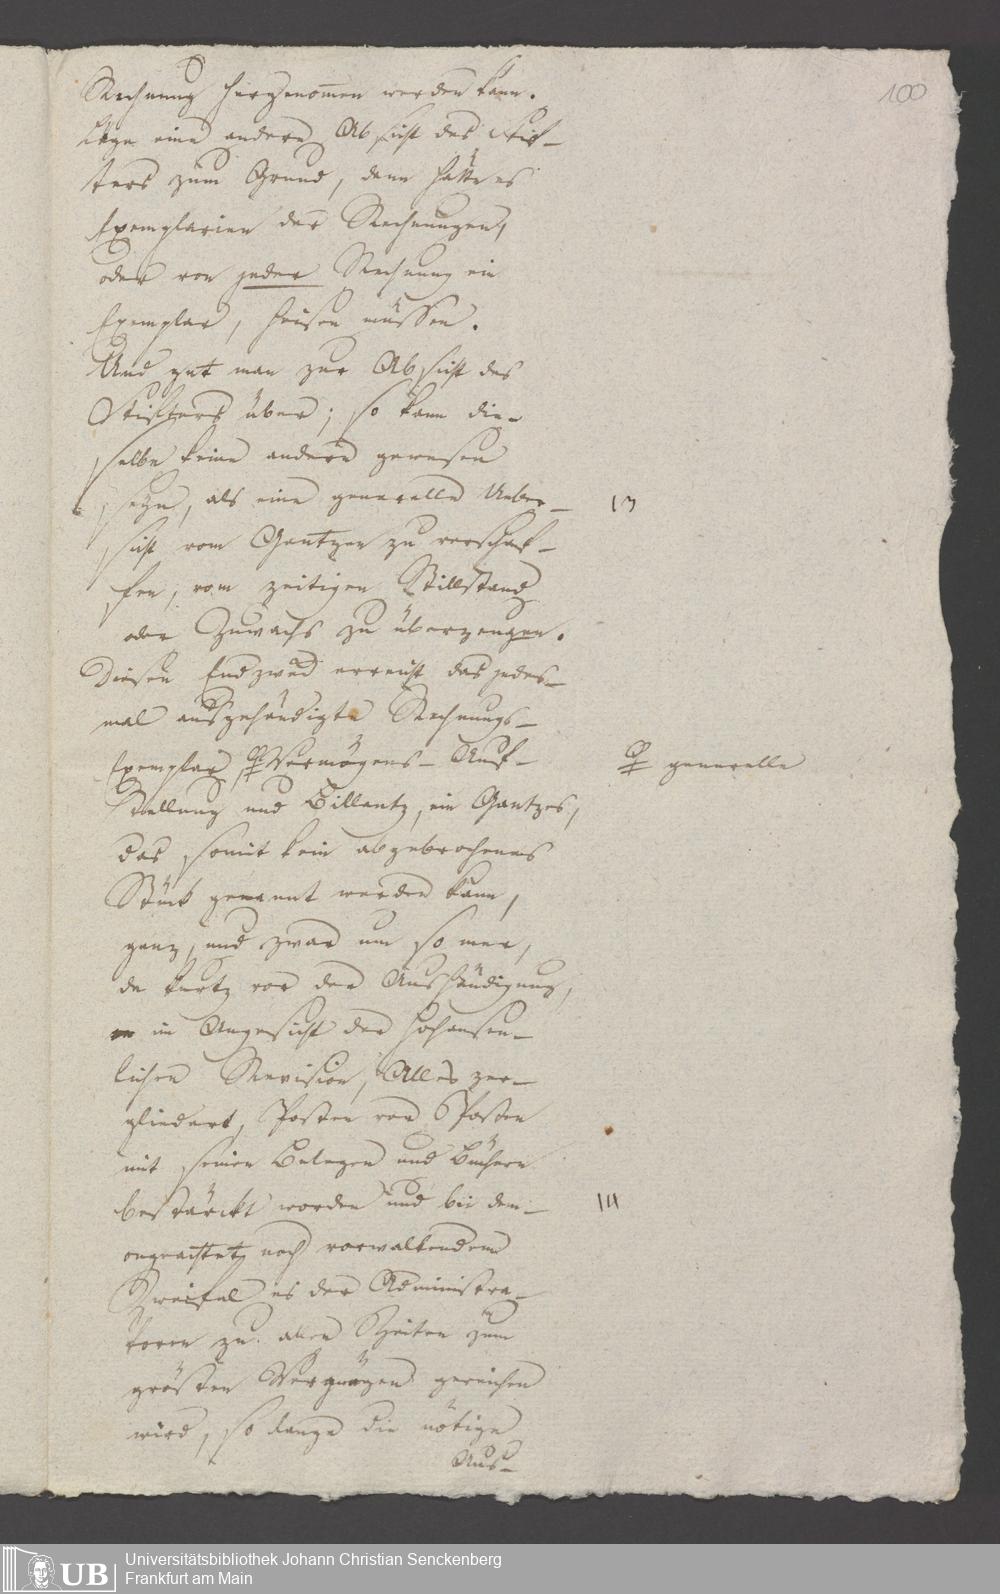 100
Rechnung hergenommen werden kann.
Läge eine andere Absicht des Stif-
ters zum Grund, dann hätte es
Exemplarien der Rechnungen,
oder von jeder Rechnung ein
Exemplar, heisen müssen.
Und geht man zur Absicht des
Stifters über; so kann die-
selbe keine andere gewesen
seyn, als eine generelle Ueber-
sicht vom Gantzen zu verschaf-
fen, vom zeitigen Stillstand
oder Zuwachs zu überzeugen.
Diesen Endzweck erreicht das jedes-
mal ausgehändigte Rechnungs-
Exemplar, Vermögens-Auf-
generelle
stellung und Billantz, ein Gantzes,
das somit kein abgebrochenes
Stück genannt werden kann,
ganz, und zwar um so mer,
da kurtz vor der Aushändigung,
im Angesicht der hochansen-
lichen Revision, Alles zer-
gliedert, Posten vor Posten
mit seinen Belegen und Büchern
bestärckt worden und bei dem-
ongeachtet noch vorwaltendem
Zweifel es der Administra-
toren zu allen Zeiten zum
grösten Vergnügen gereichen
wird, so lange die nötige
Aus-
UB
Universitätsbibliothek Johann Christian Senckenberg
Frankfurt am Main